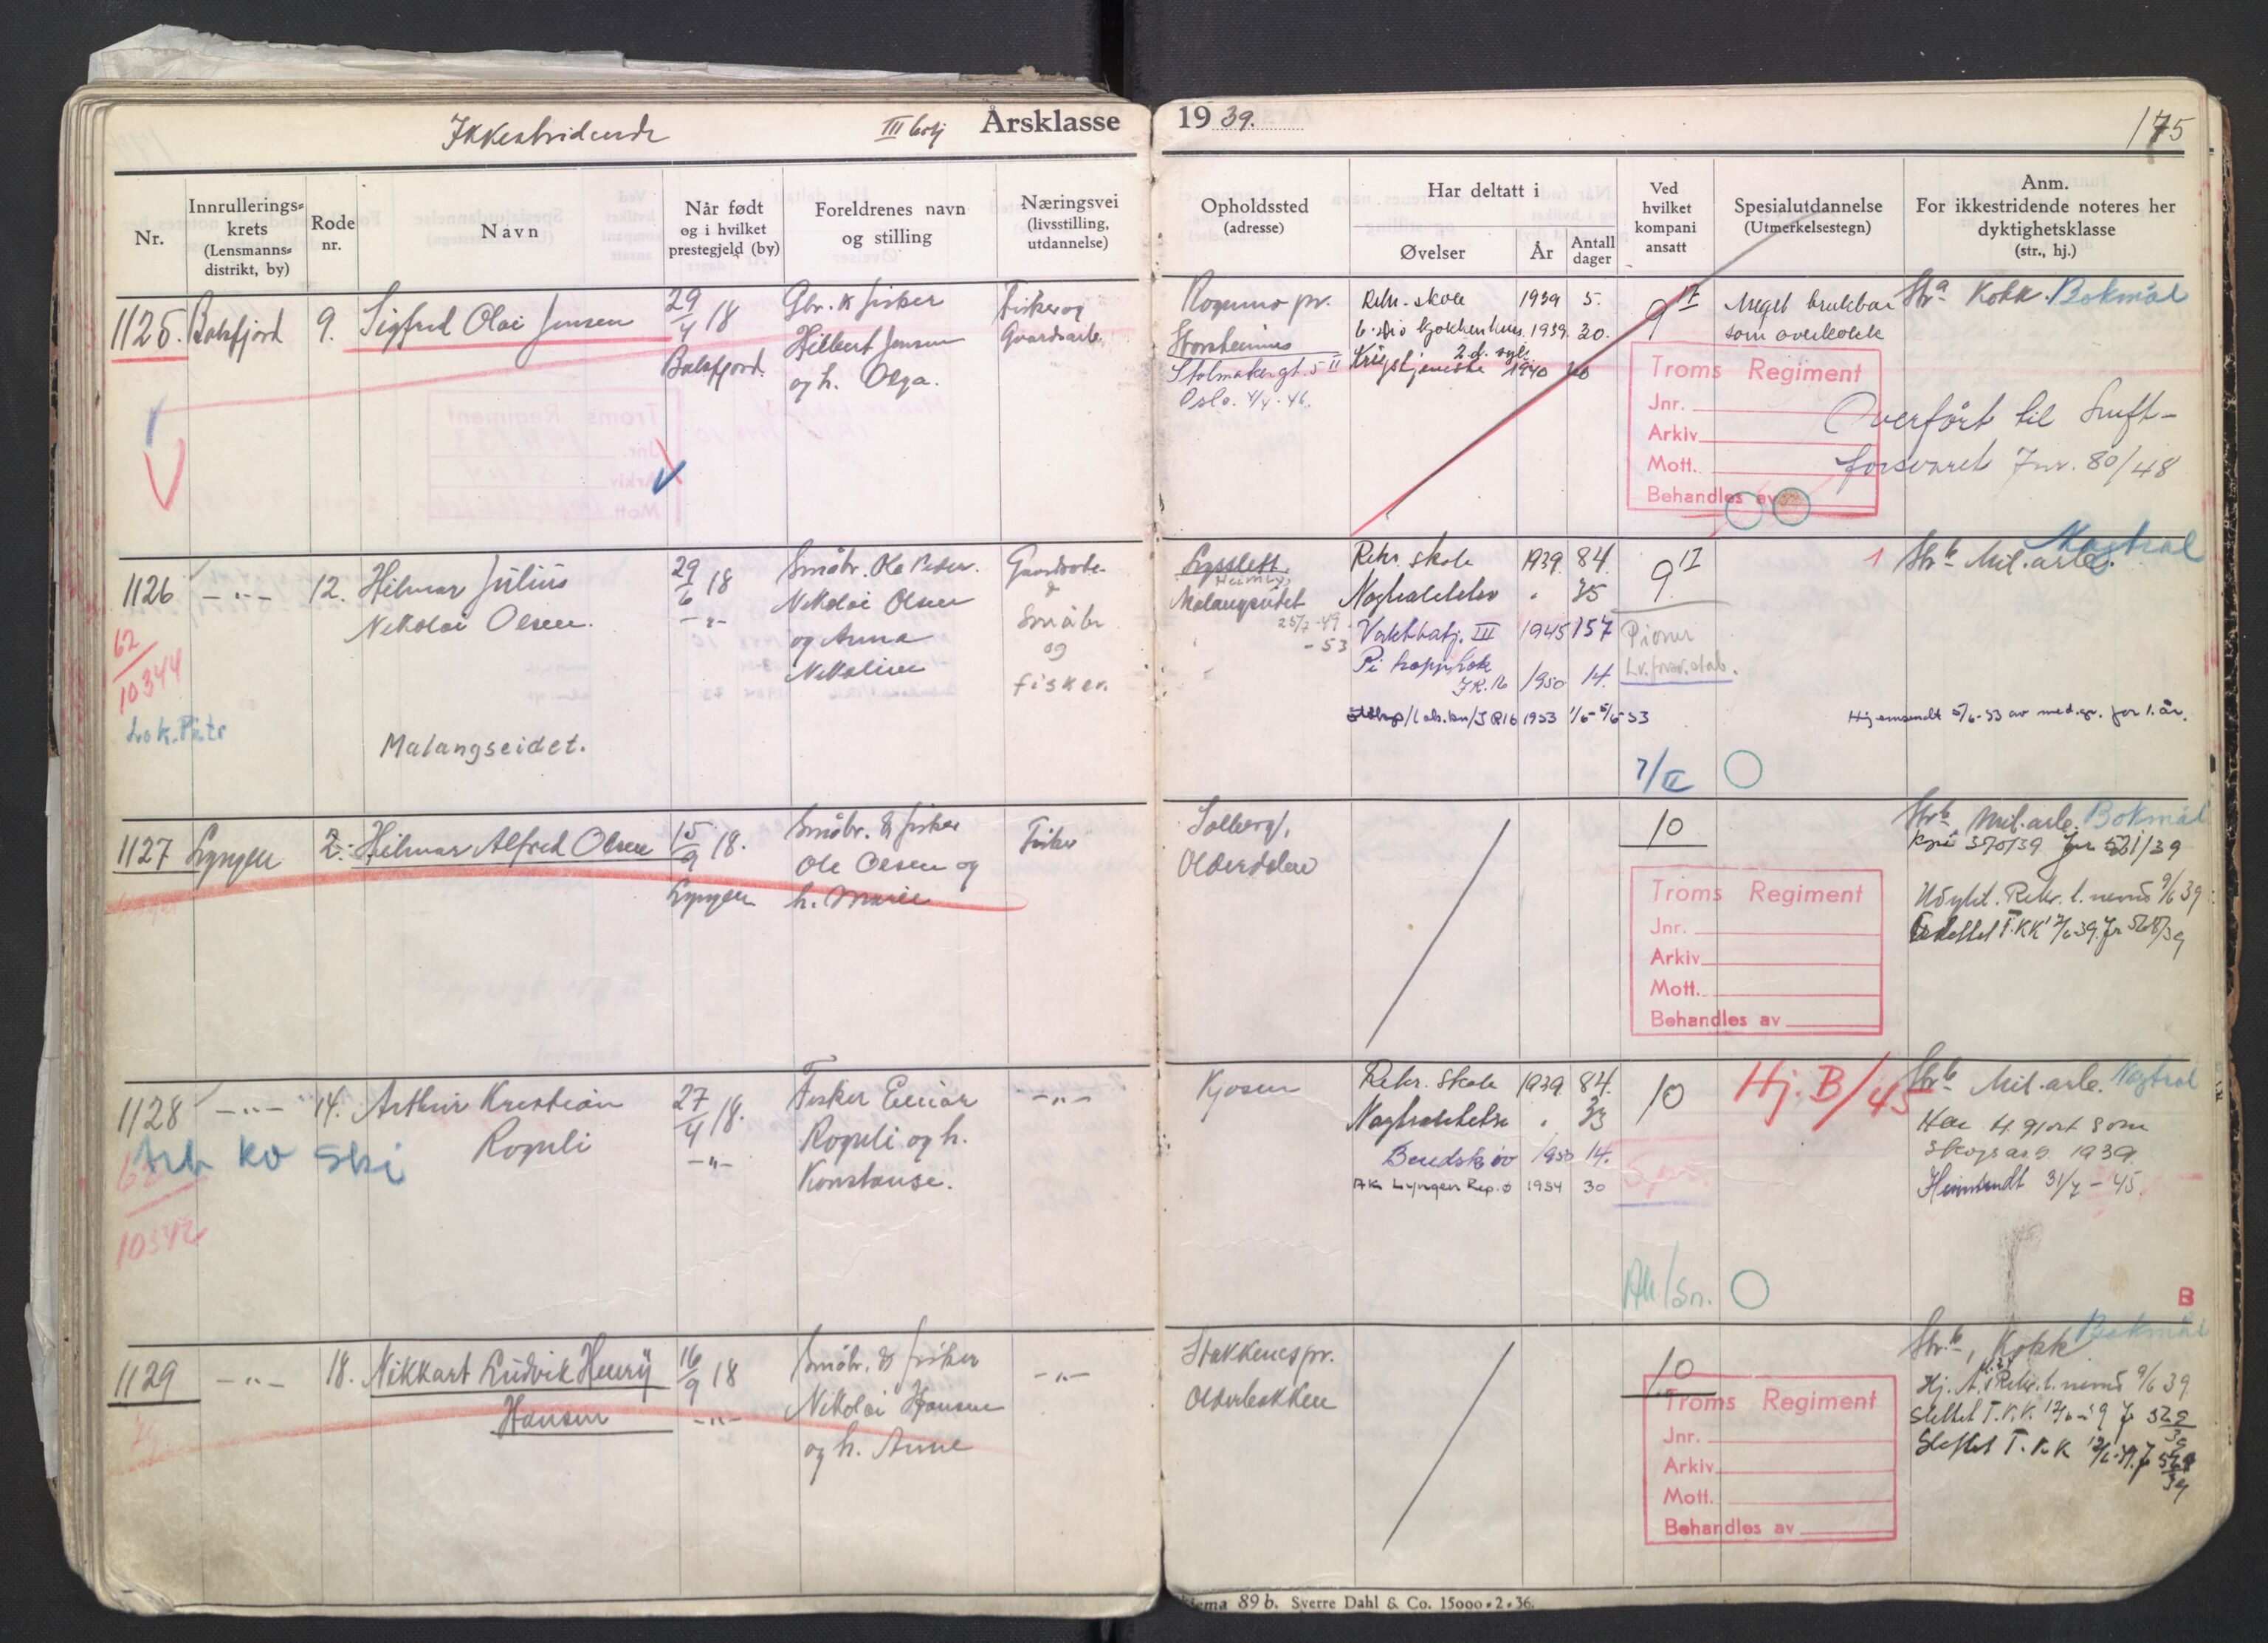 Ikkestridende III batj Årsklasse 19 39. 175
Nr.
Innrullerings-
krets
(Lensmanns-
distrikt, by)
Rode
nr.
Navn
Når født
og i hvilket
prestegjeld (by)
Foreldrenes navn
og stilling
Næringsvei
(livsstilling,
utdannelse)
Opholdssted
(adresse)
Har deltatt i
Øvelser
År
Antall
dager
Ved
hvilket
kompani
ansatt
Spesialutdannelse
(Utmerkelsestegn)
Anm.
For ikkestridende noteres her
dyktighetsklasse
(str., hj.)
1125. Balsfjord 9. Sigfred Olai Jensen
29/4 18
Balsfjord.
Gbr. & fisker
Hilbert Jensen
og h. Olga.
Fisker og
Gaardsarb.
pr.
Storsteinnes
Stolmakergt. 5 II
Oslo. 4/4-46.
Rekr. skole 1939 5.
1939 30.
Krigstjeneste 1940
9 II
Meget brukbar
som overkokk
Str a Kokk. Bokmål
Troms Regiment
Jnr.
Arkiv
Mott.
Behandles av
Overført til Luft-
forsvaret Jnr. 80/48
1126 -"- 12. Hilmar Julius
Nikolai Olsen.
29/6 18
-"-
Småbr. Ole Peder
Nikolai Olsen
og Anna
Nikoline
Gaardsarb.
&
Småbr
og
fisker.
62/10344
Malangseidet.
Heimly,
Malangseidet
25/7-49
-53
Rekr. skole 1939. 84.
Nøytralitetsv " 35
Vaktbatj. III 1945 157
I.R. 16 1950 14.
1953 1/6-5/6-53
9 II
Pioner
7/II
1 Str b Mil. arb. Nøytral
Hjemsendt 5/6-53 av med.gr. for 1. år.
1127 Lyngen 2. Hilmar Alfred Olsen
15/9 18.
Lyngen
Småbr. & fisker
Ole Olsen og
h. Marie
Fisker
Solberg,
Olderdalen
10
Troms Regiment
Jnr.
Arkiv
Mott.
Behandles av
Str b Mil. arb. Bokmål
370/39 jr 531/39
Udykt. Rekr. l. nemd 9/6 39
Slettet T.KK 39
1128 -"- 14. Arthur Kristian
Rognli
27/4 18.
-"-
Fisker Einar
Rognli og h.
Konstanse.
-"-
Ark KO Ski
10342
Kjosen
Rekr. Skole 1939 84.
Nøytralitetsv " 33
Beredsk. öv 1950 14.
AK Lyngen Rep.ø 1954 30
10
Hj. B/45
Str b Mil. arb. Nøytral
Har gjort som
1939.
Heimsendt 31/7-45.
B
1129 -"- 18. Nikkart Ludvik Henry
Hansen
16/9 18
-"-
Småbr. & fisker
Nikolai Hansen
og h. Anne
-"-
Stokkenes pr.
Olderbakken
10
Troms Regiment
Jnr.
Arkiv
Mott.
Behandles av
Str. b, Kokk Bokmål
Hj. Rekr. l. nemd 9/6 39
Slettet T.K.K. 12/6-39 529/39
Slettet T.K.K 12/6-39. 529/39
89 b. Sverre Dahl & Co. 15000.2.36.